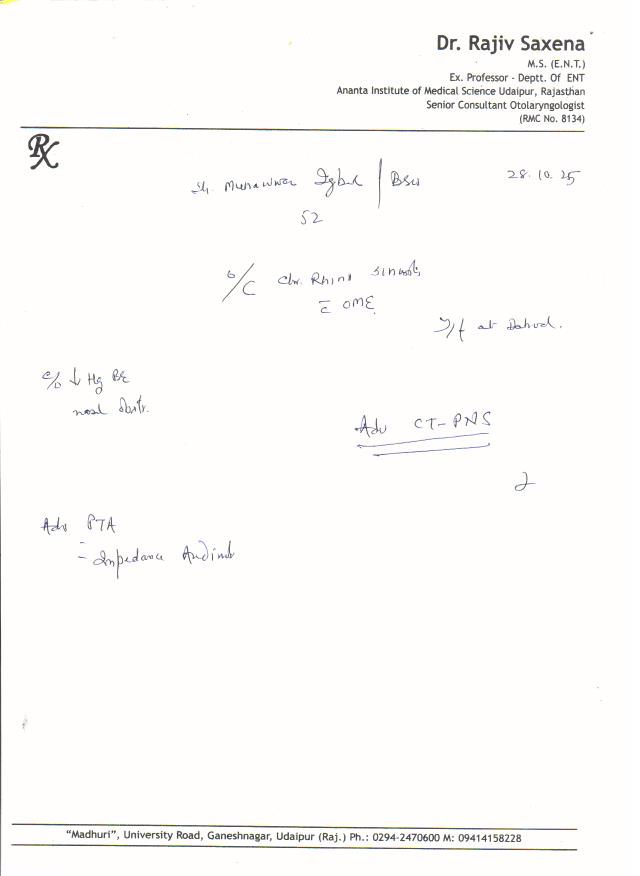 Dr. Rajiv Saxena
M.S. (E.N.T.)
Ex. Professor - Deptt. Of ENT
Ananta Institute of Medical Science Udaipur, Rajasthan
Senior Consultant Otolaryngologist
(RMC No. 8134)
Rx
Sh. Munawwar Iqbal | 28.10.25
52
Chr. Rhino sinusitis
c̄ OME
at Dahod.
c/o ↓ Hg BE
nasal Obstr.
Adv CT-PNS
Adv PTA
- Impedance Audiome
"Madhuri", University Road, Ganeshnagar, Udaipur (Raj.) Ph.: 0294-2470600 M: 09414158228